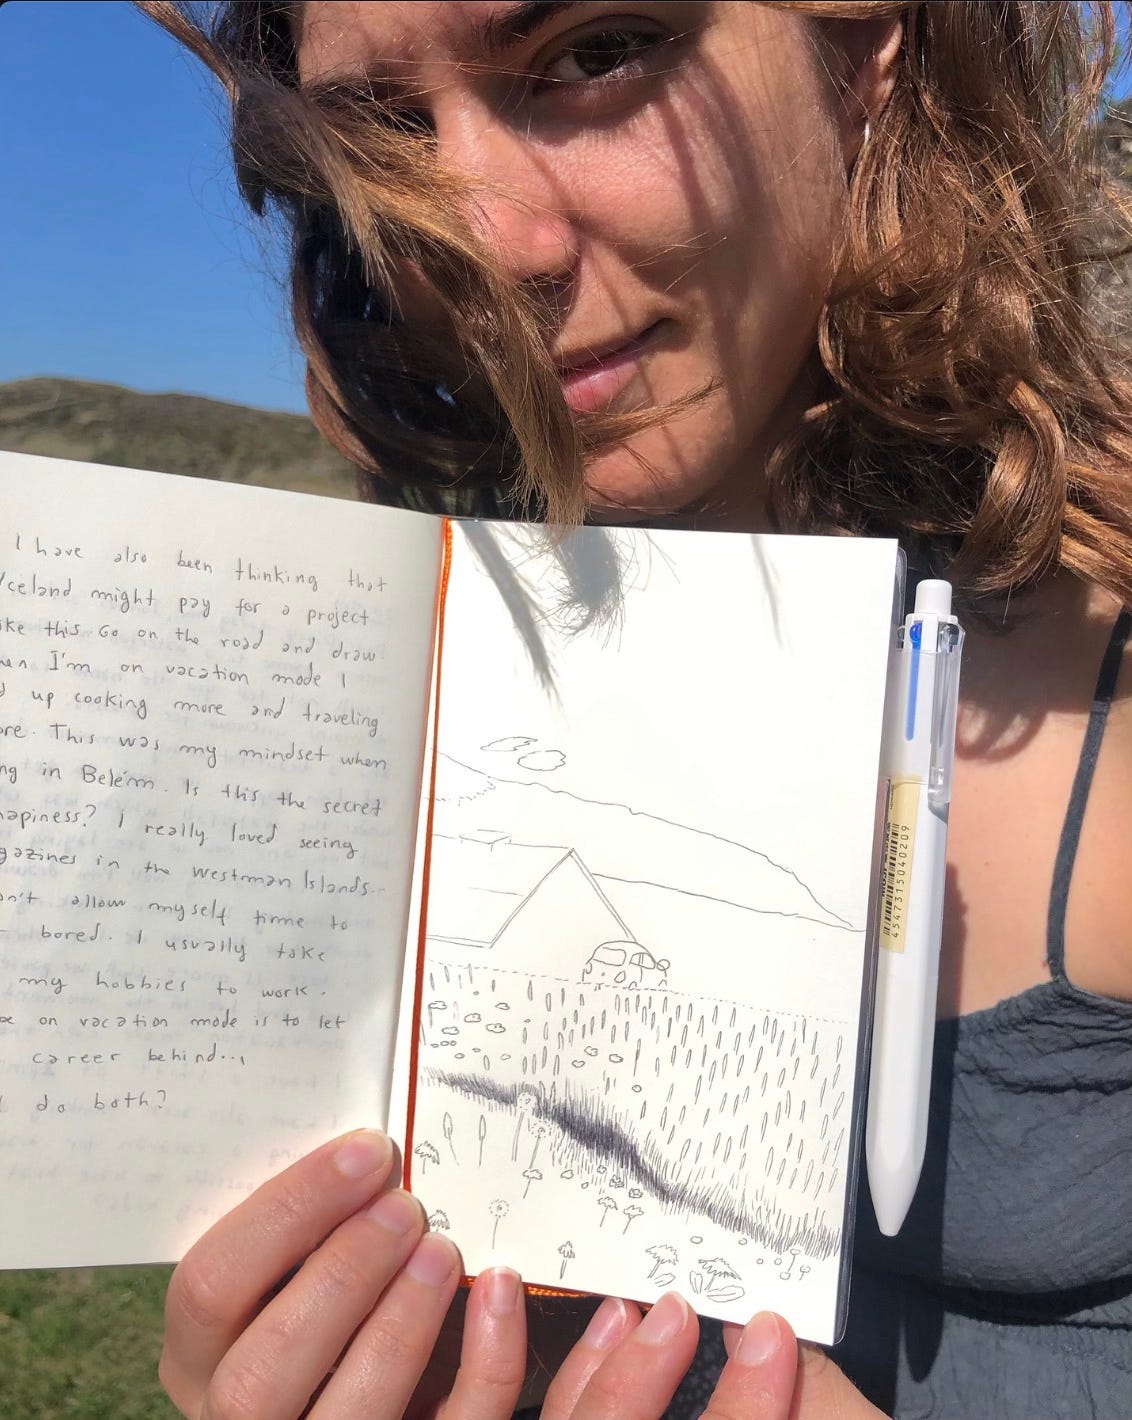 I have also been thinking that
Iceland might pay for a project
like this Go on the road and draw
When I'm on vacation mode I
up cooking more and traveling
more. This was my mindset when
in Belém. Is this the secret
happiness? I really loved seeing
magazines in the Westman Islands.
don't allow myself time to
bored. I usually take
my hobbies to work.
on vacation mode is to let
career behind...
I do both?
4547315040209